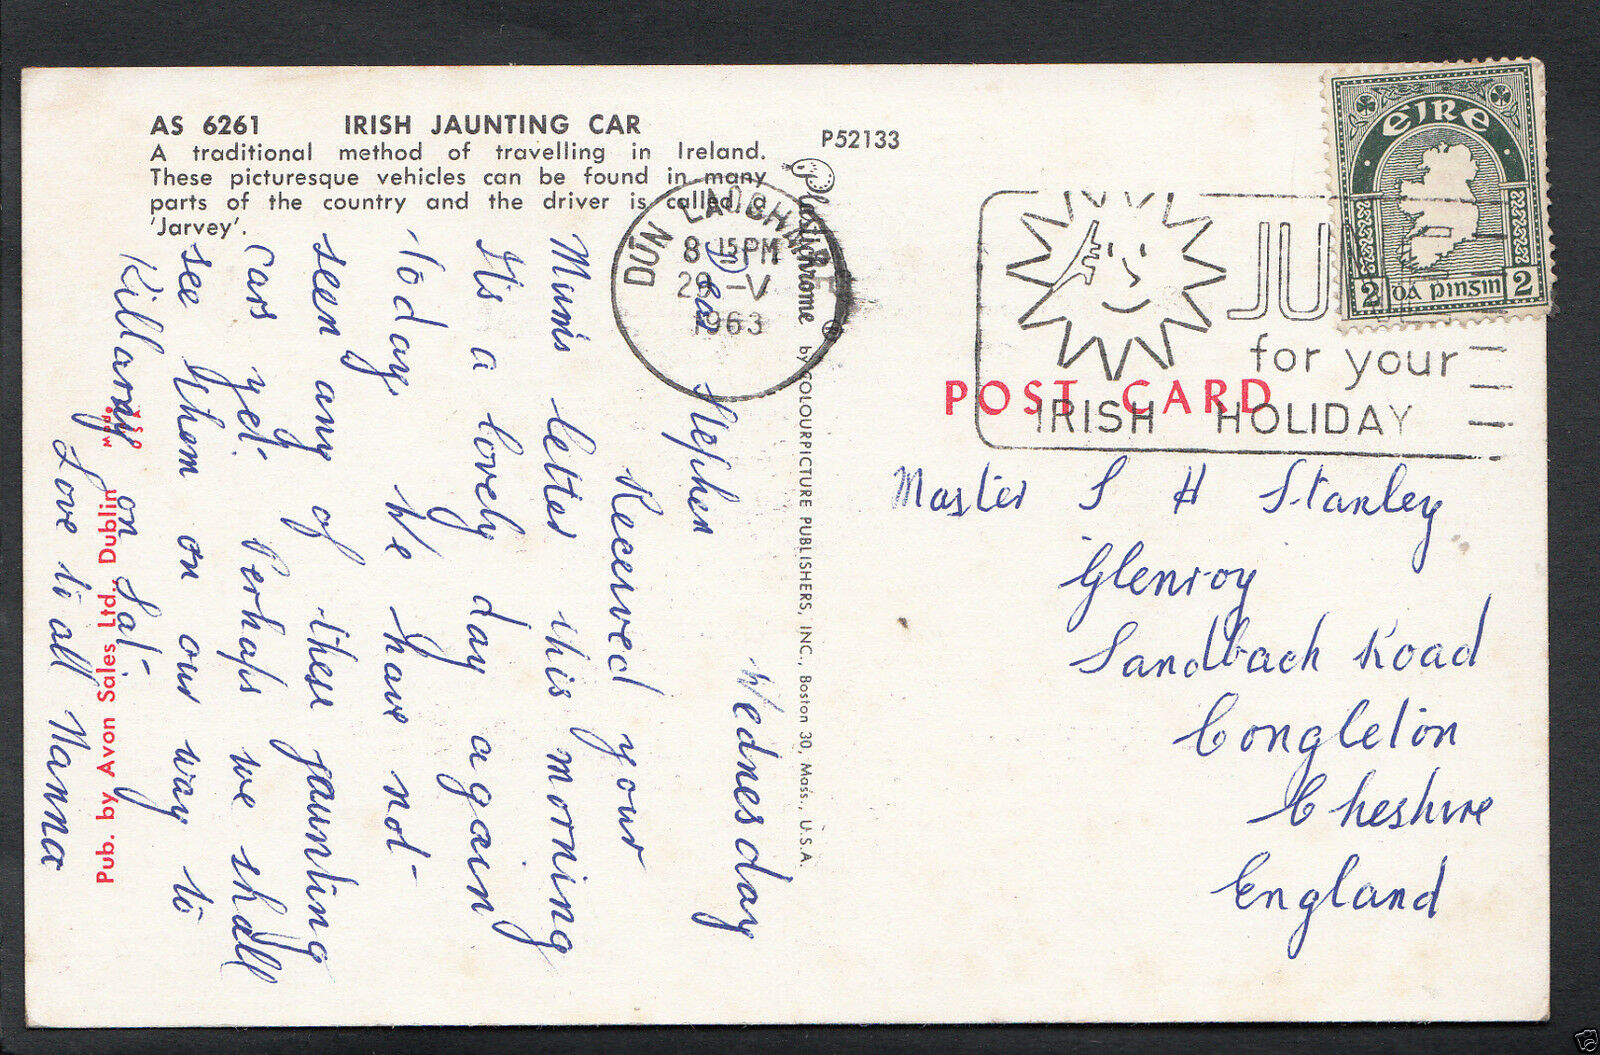 AS 6261 IRISH JAUNTING CAR
A traditional method of travelling in Ireland.
These picturesque vehicles can be found in many
parts of the country and the driver is called a
'Jarvey'.
P52133
Plastichrome ® by COLOURPICTURE PUBLISHERS, INC., Boston 30, Mass., U.S.A.
Pub. by Avon Sales Ltd., Dublin
DÚN LAOGHAIRE
8 15PM
29 -V
1963
JUNE
for your
IRISH HOLIDAY
POST CARD
EIRE
2 DÁ PINSIN 2
Wednesday
Dear Stephen
Received your
Mum's letter this morning
It's a lovely day again
today. We have not
seen any of these jaunting
cars yet. Perhaps we shall
see them on our way to
Killarny on Sat.
Love to all Nanna
Master S H Stanley
Glenroy
Sandbach Road
Congleton
Cheshire
England